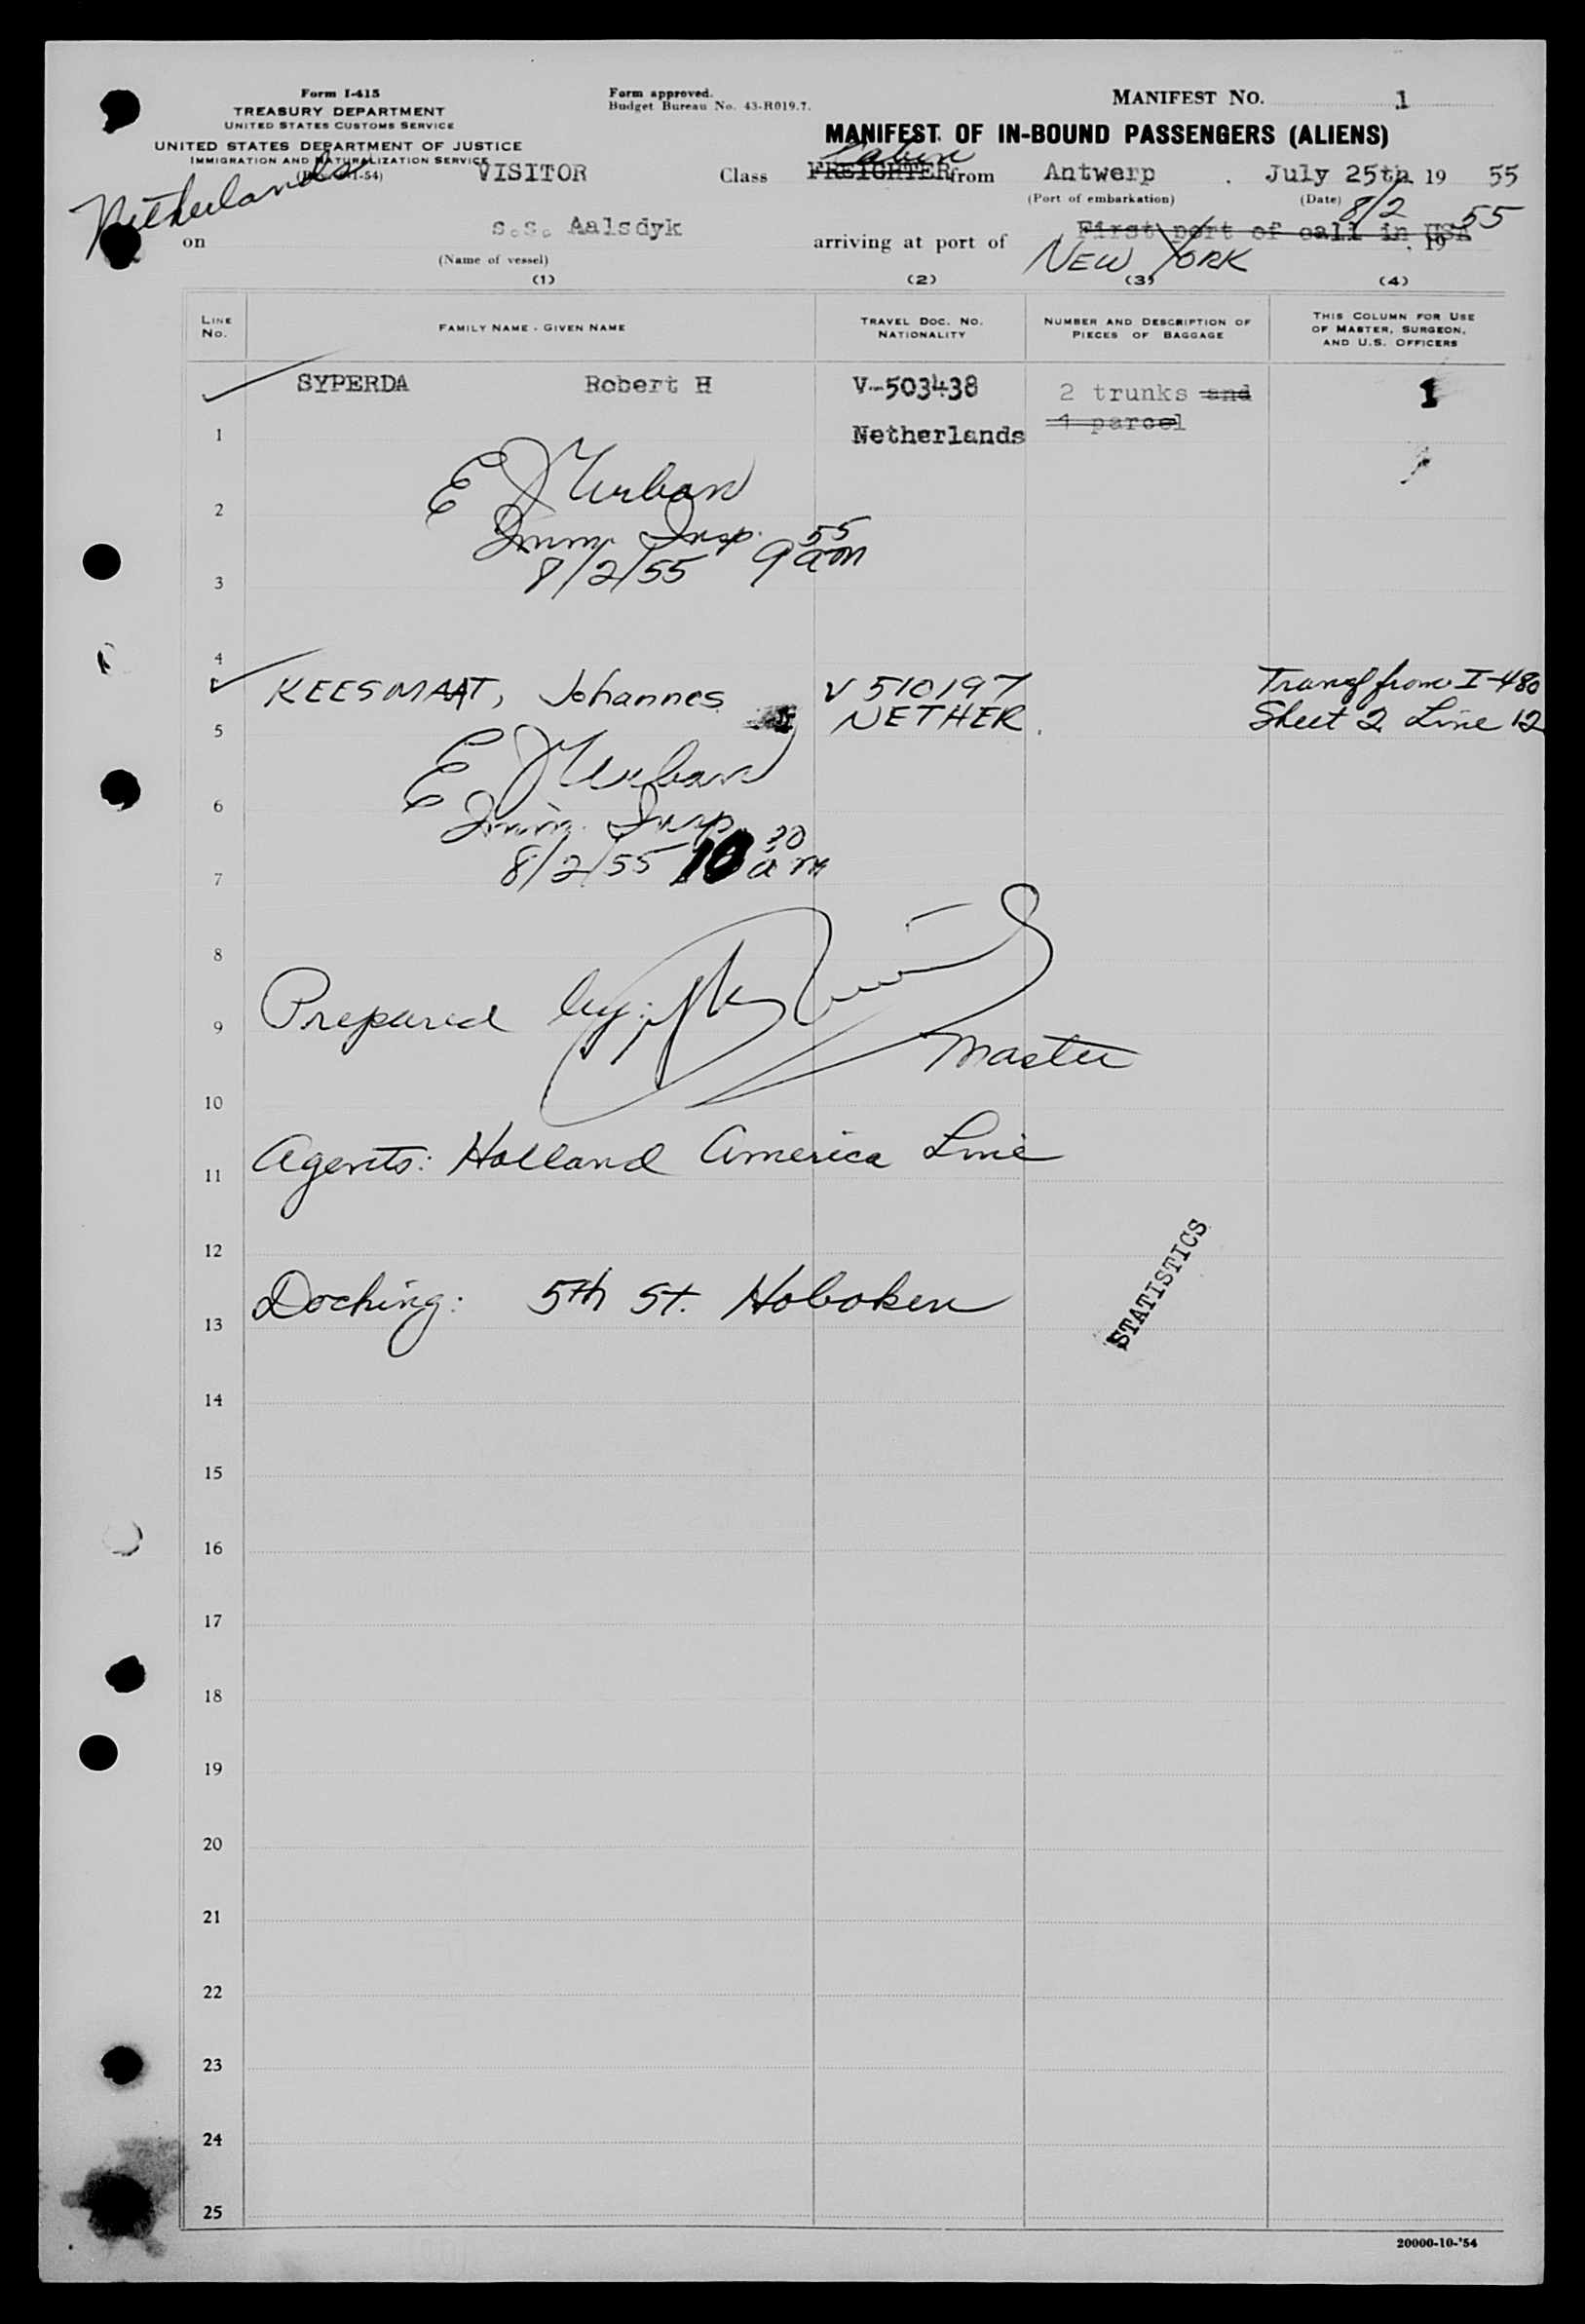 Form I-415
TREASURY DEPARTMENT
UNITED STATES CUSTOMS SERVICE
UNITED STATES DEPARTMENT OF JUSTICE
IMMIGRATION AND NATURALIZATION SERVICE
Netherlands
Form approved.
Budget Bureau No. 43-R019.7.
MANIFEST NO. 1
MANIFEST OF IN-BOUND PASSENGERS (ALIENS)
Cabin
VISITOR Class FREIGHTER from Antwerp . July 25th 19 55
(Port of embarkation) (Date)
8/2 55
on s.s. Aalsdyk arriving at port of First port of call in USA . 19
(Name of vessel) NEW YORK
(1) (2) (3) (4)
LINE NO. FAMILY NAME - GIVEN NAME TRAVEL DOC. NO. NATIONALITY NUMBER AND DESCRIPTION OF PIECES OF BAGGAGE THIS COLUMN FOR USE OF MASTER, SURGEON, AND U.S. OFFICERS
SYPERDA Robert H V-503438 2 trunks and 1
1 Netherlands 1 parcel
E J Urban
2
Imm. Insp. 9 55 am
8/2/55
3
4
KEESMAAT, Johannes V 510197 Transf from I-480
5 NETHER. Sheet 2 Line 12
E J Urban
6
Imm. Insp.
8/2/55 10 30 am
7
8
Prepared by:
9
Master
10
Agents: Holland America Line
11
12
Docking: 5th St. Hoboken
13
STATISTICS
14
15
16
17
18
19
20
21
22
23
24
25
20000-10-'54